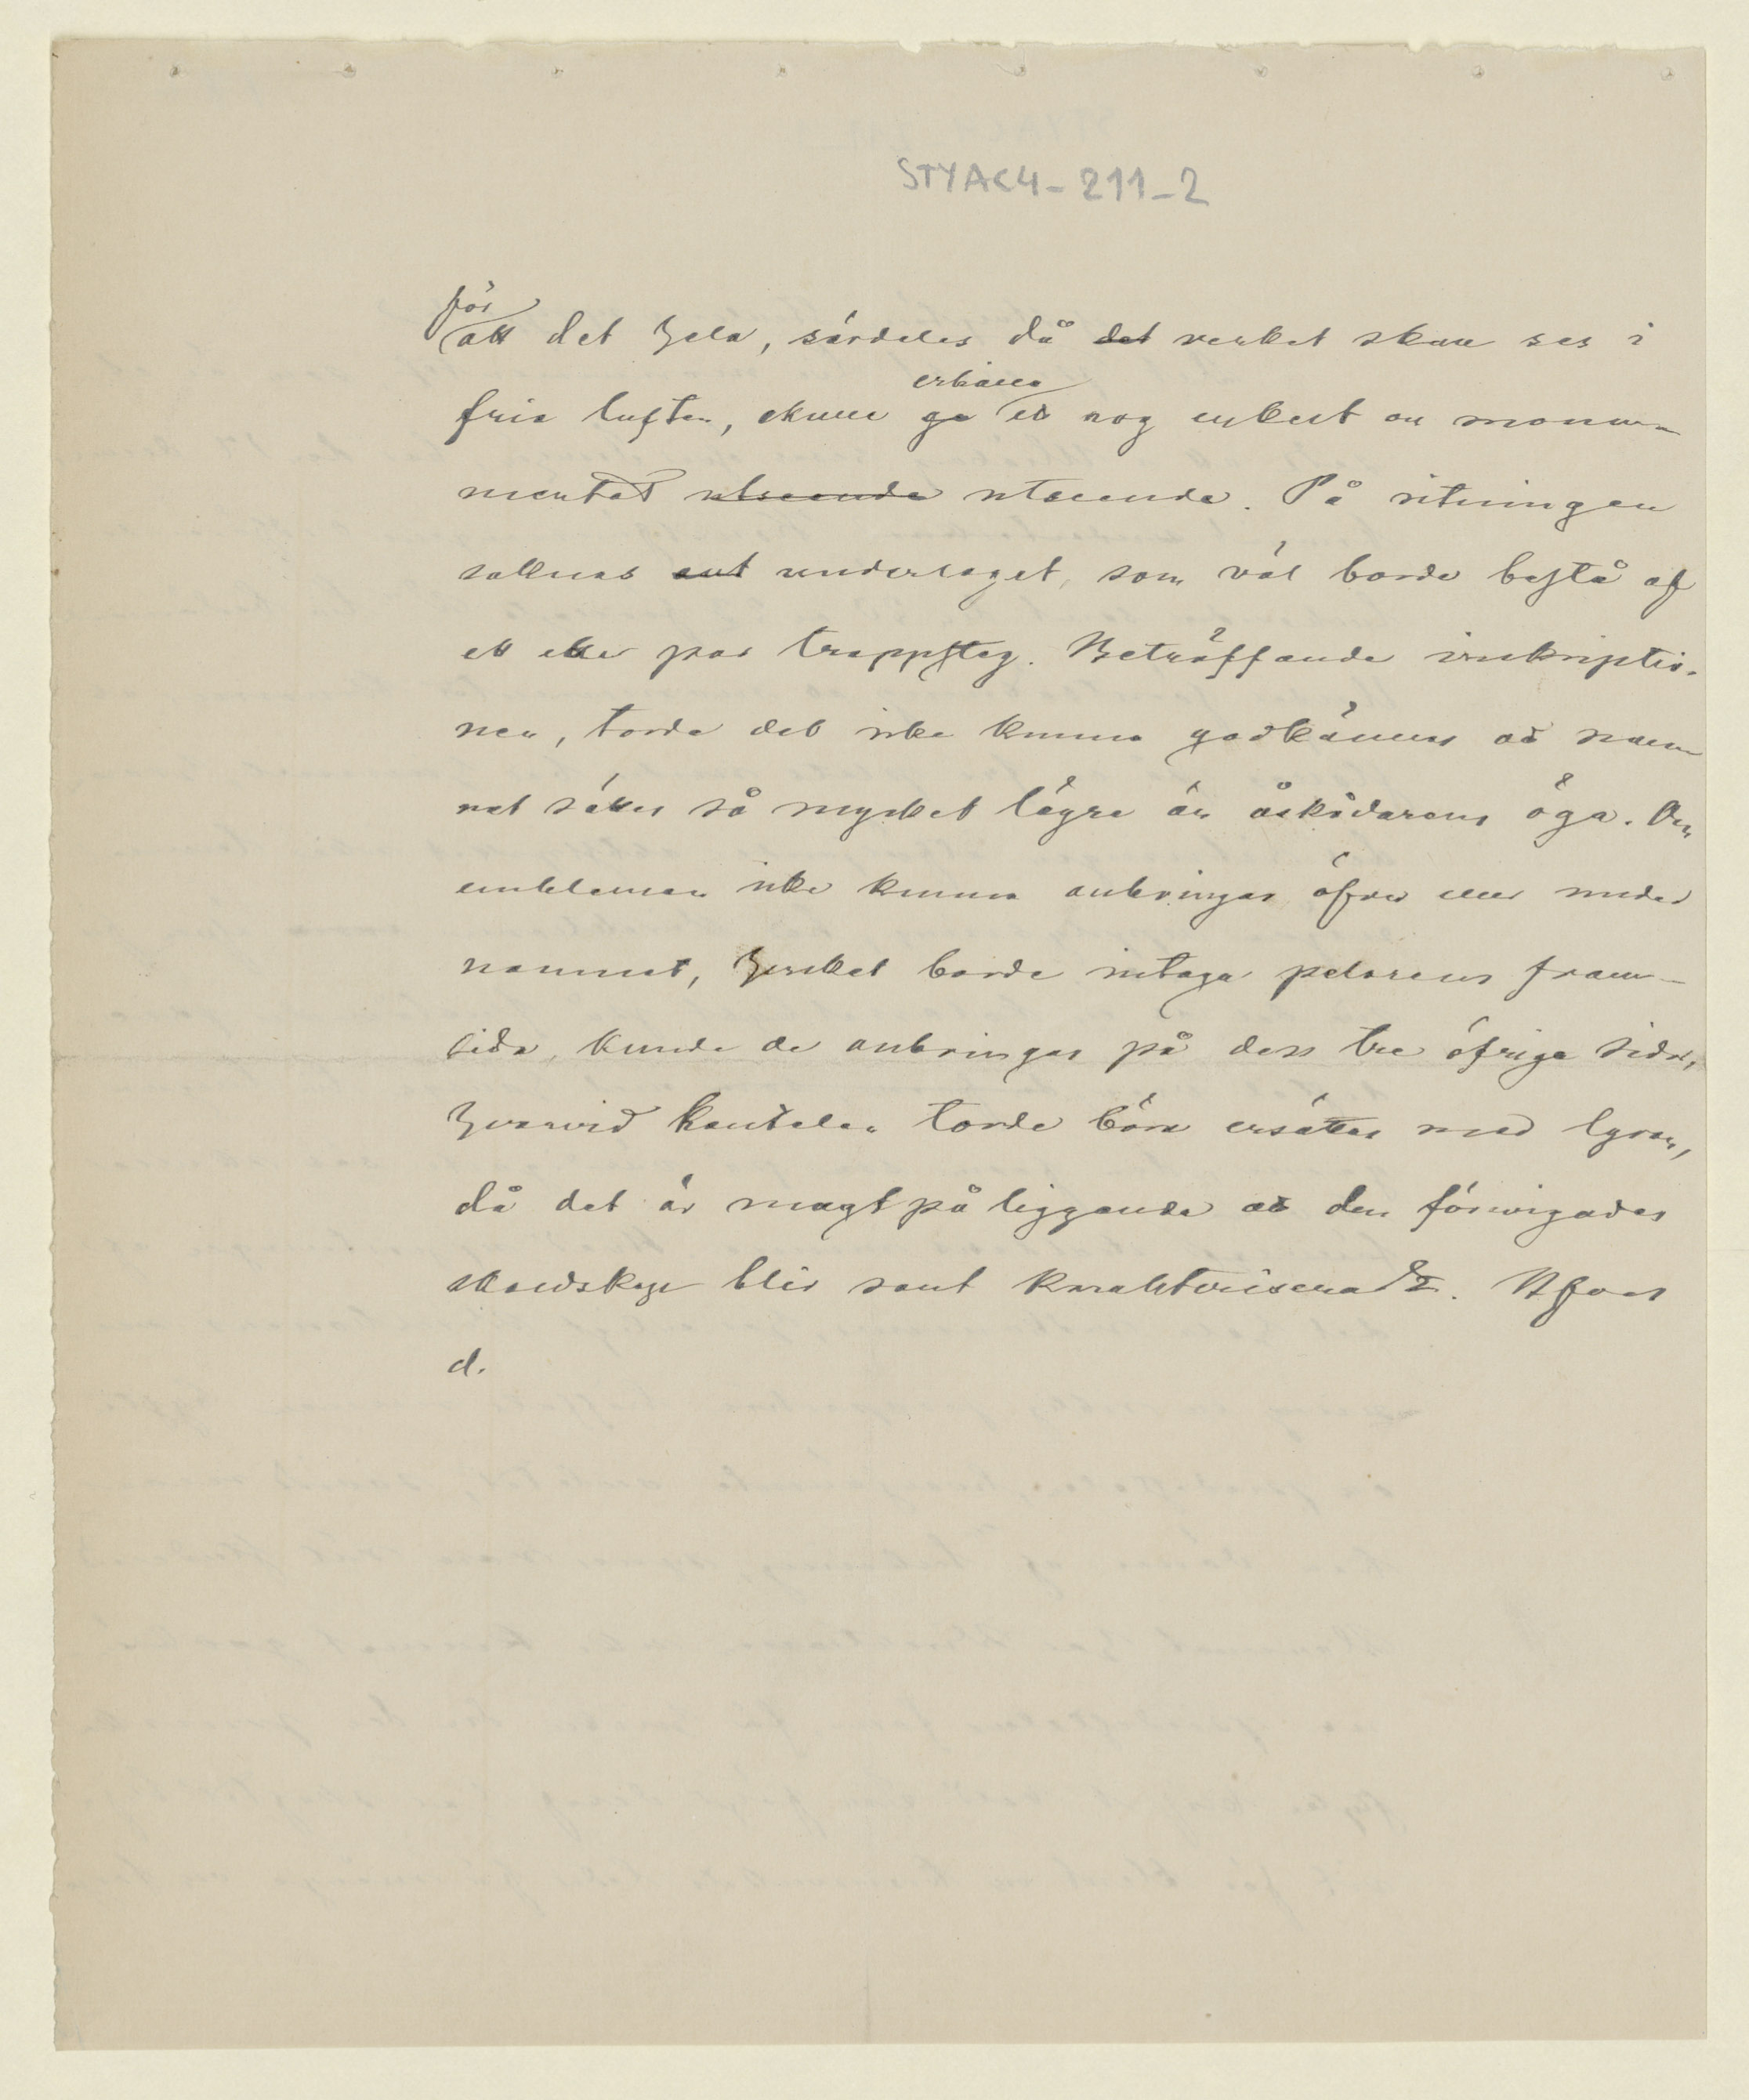 STYAC4-211_2
för
att det hela, särdeles då det verket skall ses i
erhålla
fria luften, skulle ge ett nog enkelt och monu-
mentalt utseende utseende. På ritningen
saknas ant underlaget, som väl borde bestå af
ett eller par trappsteg. Beträffande inskriptio-
nen, torde det icke kunna godkännas att nam
net sättes så mycket lägre än åskådarens öga. Om
emblemen icke kunna anbringas öfver eller under
namnet, hvilket borde intaga pelarens fram-
sida, kunde de anbringas på dess tre öfriga sidor,
hvarvid kantelen torde böra ersättas med lyran,
då det är magtpåliggande att den förevigades
skaldskap blir sant karakteriserad. Hfors
d.